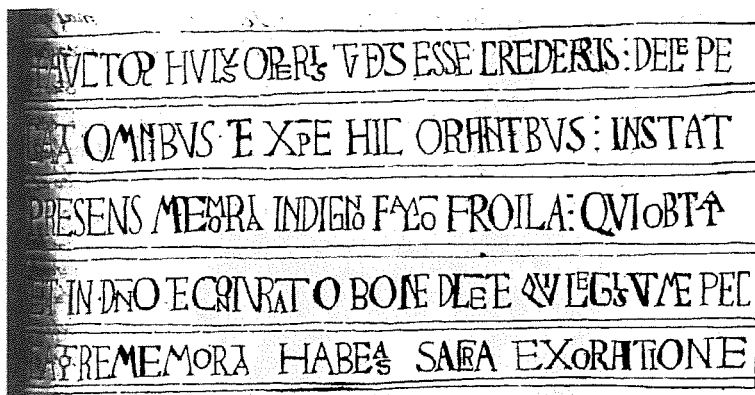 AVCTOR HVIVS OPERIS TV DS ESSE CREDERIS : DELE PEC
CATA OMNIBVS · TE XPE HIC ORANTIBVS : INSTAT
PRESENS MEMORIA INDIGNO FAMVLO FROILA : QVI OBTAT
ET IN DNO TE CONIVRAT O BONE DILECTE QVI LEGIS VT ME PEC
REMEMORIA HABEAS SACRA EX ORATIONE